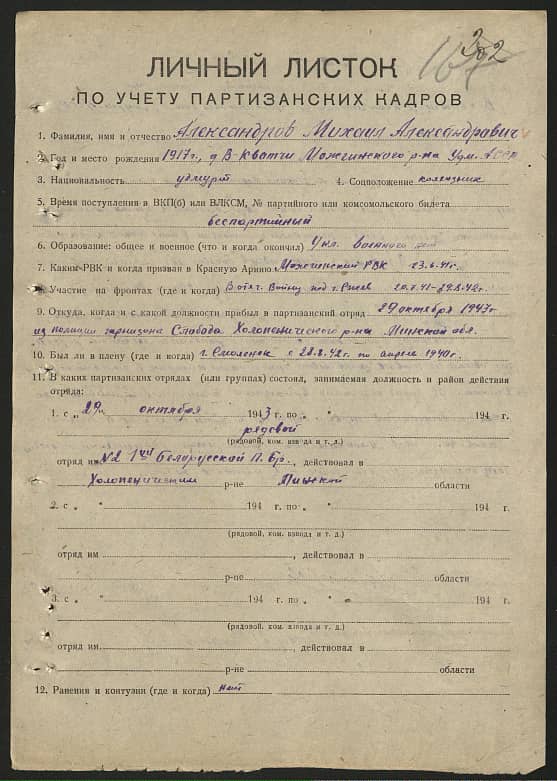 302
ЛИЧНЫЙ ЛИСТОК
ПО УЧЕТУ ПАРТИЗАНСКИХ КАДРОВ
1. Фамилия, имя и отчество Александров Михаил Александравич
2. Год и место рождения 1917г., д В-Кватчи Можгинского р-на Удм. АССР
3. Национальность удмурт 4. Соцположение колхозник
5. Время поступления в ВКП(б) или ВЛКСМ, № партийного или комсомольского билета
беспартийный
6. Образование: общее и военное (что и когда окончил) 4 кл. Военного нет
7. Каким РВК и когда призван в Красную Армию Можгинский РВК 23.6.41г.
8. Участие на фронтах (где и когда) В отеч. Войну под г. Ржев 20.7.41-28.8.42г.
9. Откуда, когда и с какой должности прибыл в партизанский отряд 29 октября 1943г
из полиции гарнизона Слобода Холопеничского р-на Минской обл.
10. Был ли в плену (где и когда) г. Смоленск с 28.8.42г. по апрель
11. В каких партизанских отрядах (или группах) состоял, занимаемая должность и район действия
отряда:
1. с „ 29 „ октября 1943 г. по „ " 194 г.
рядовой
(рядовой, ком. взвода и т. д.)
отряд им №2 1ой Белорусской П. Бр., действовал в
Холопеничском р-не Минской области
2. с „ " 194 г. по „ " 194 г.
(рядовой, ком. взвода и т. д.)
отряд им , действовал в
р-не области
3. с „ " 194 г. по „ " 194 г.
(рядовой, ком. взвода и т. д.)
отряд им. , действовал в
р-не области
12. Ранения и контузии (где и когда) нет